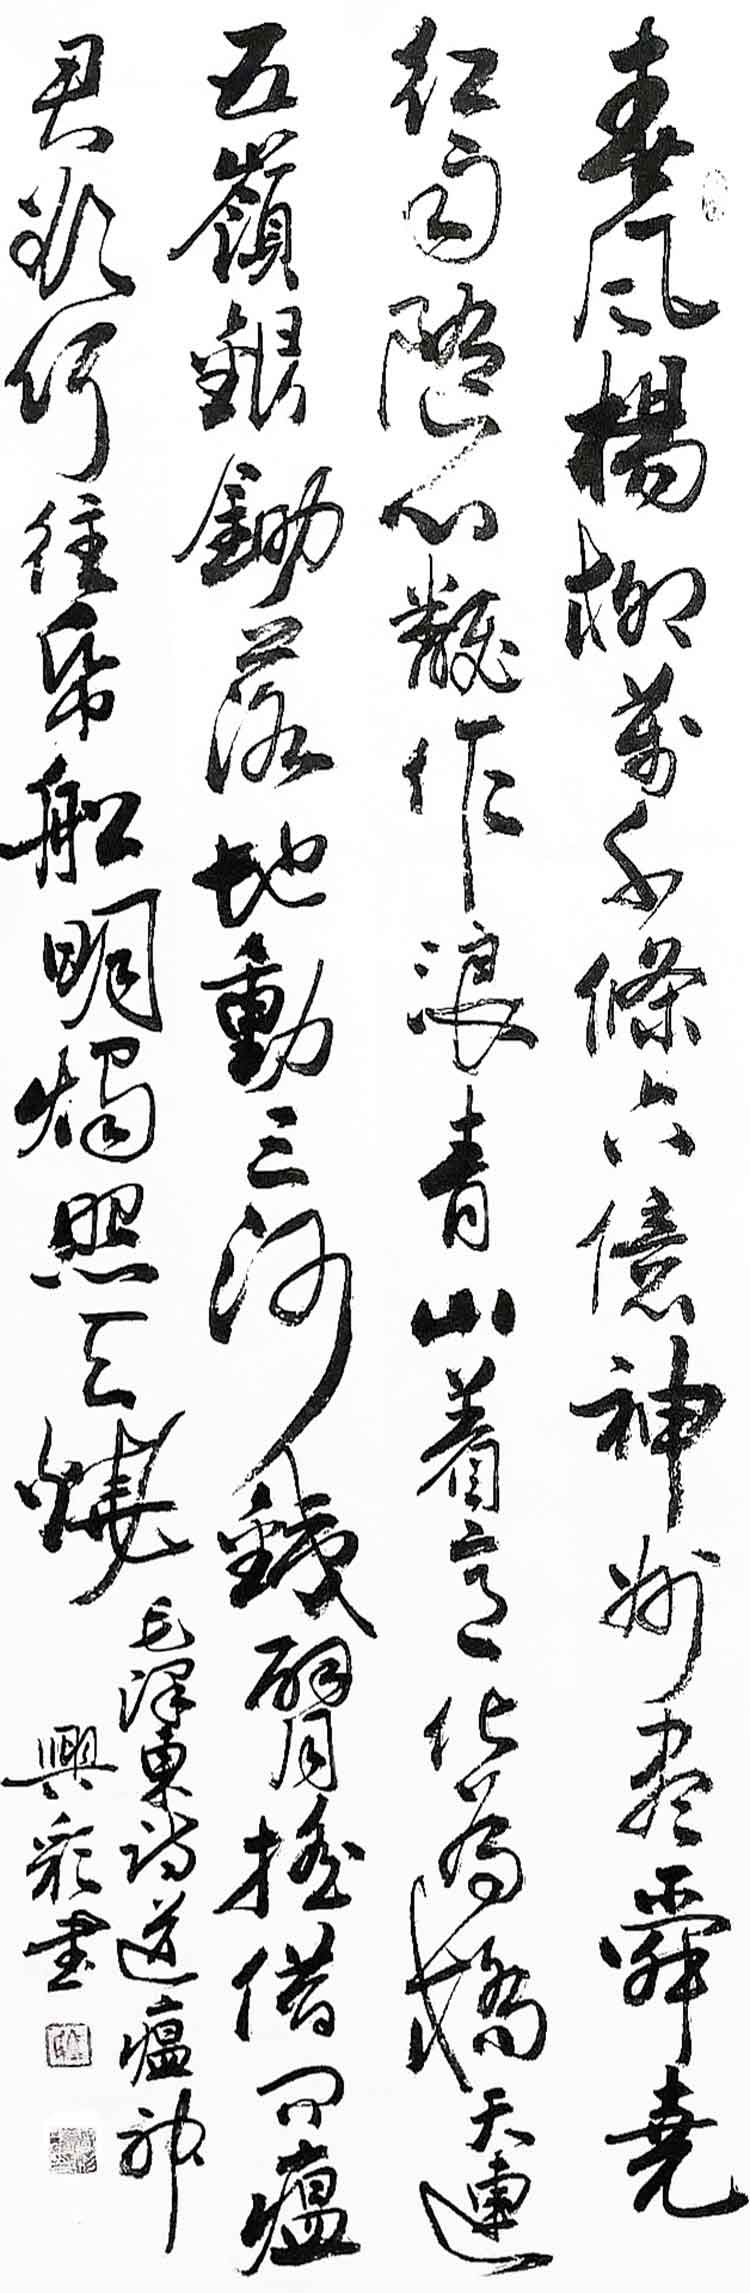 春風楊柳萬千條六億神州盡舜堯
紅雨隨心翻作浪青山着意化為橋天連
五嶺銀鋤落地動三河鐵臂搖借問瘟
君欲何往帋船明燭照天燒
毛澤東詩送瘟神
興彩書